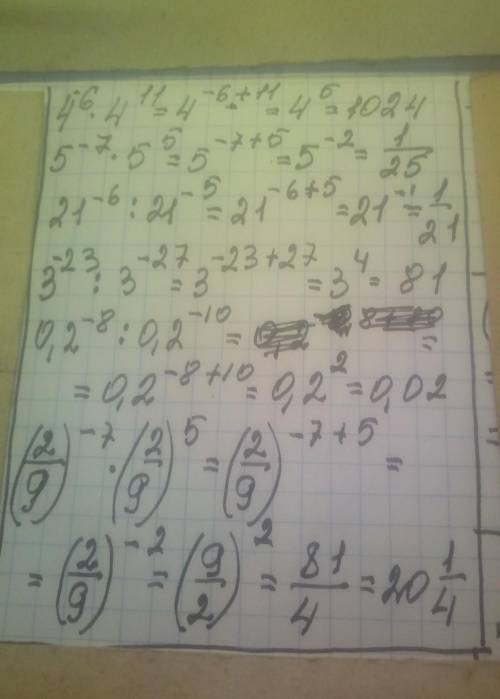 4⁻⁶ · 4¹¹ = 4⁻⁶⁺¹¹ = 4⁵ = 1024
5⁻⁷ · 5⁵ = 5⁻⁷⁺⁵ = 5⁻² = 1/25
21⁻⁶ : 21⁻⁵ = 21⁻⁶⁺⁵ = 21⁻¹ = 1/21
3⁻²³ : 3⁻²⁷ = 3⁻²³⁺²⁷ = 3⁴ = 81
0,2⁻⁸ : 0,2⁻¹⁰ = =
= 0,2⁻⁸⁺¹⁰ = 0,2² = 0,02
(2/9)⁻⁷ · (2/9)⁵ = (2/9)⁻⁷⁺⁵ =
= (2/9)⁻² = (9/2)² = 81/4 = 20 1/4